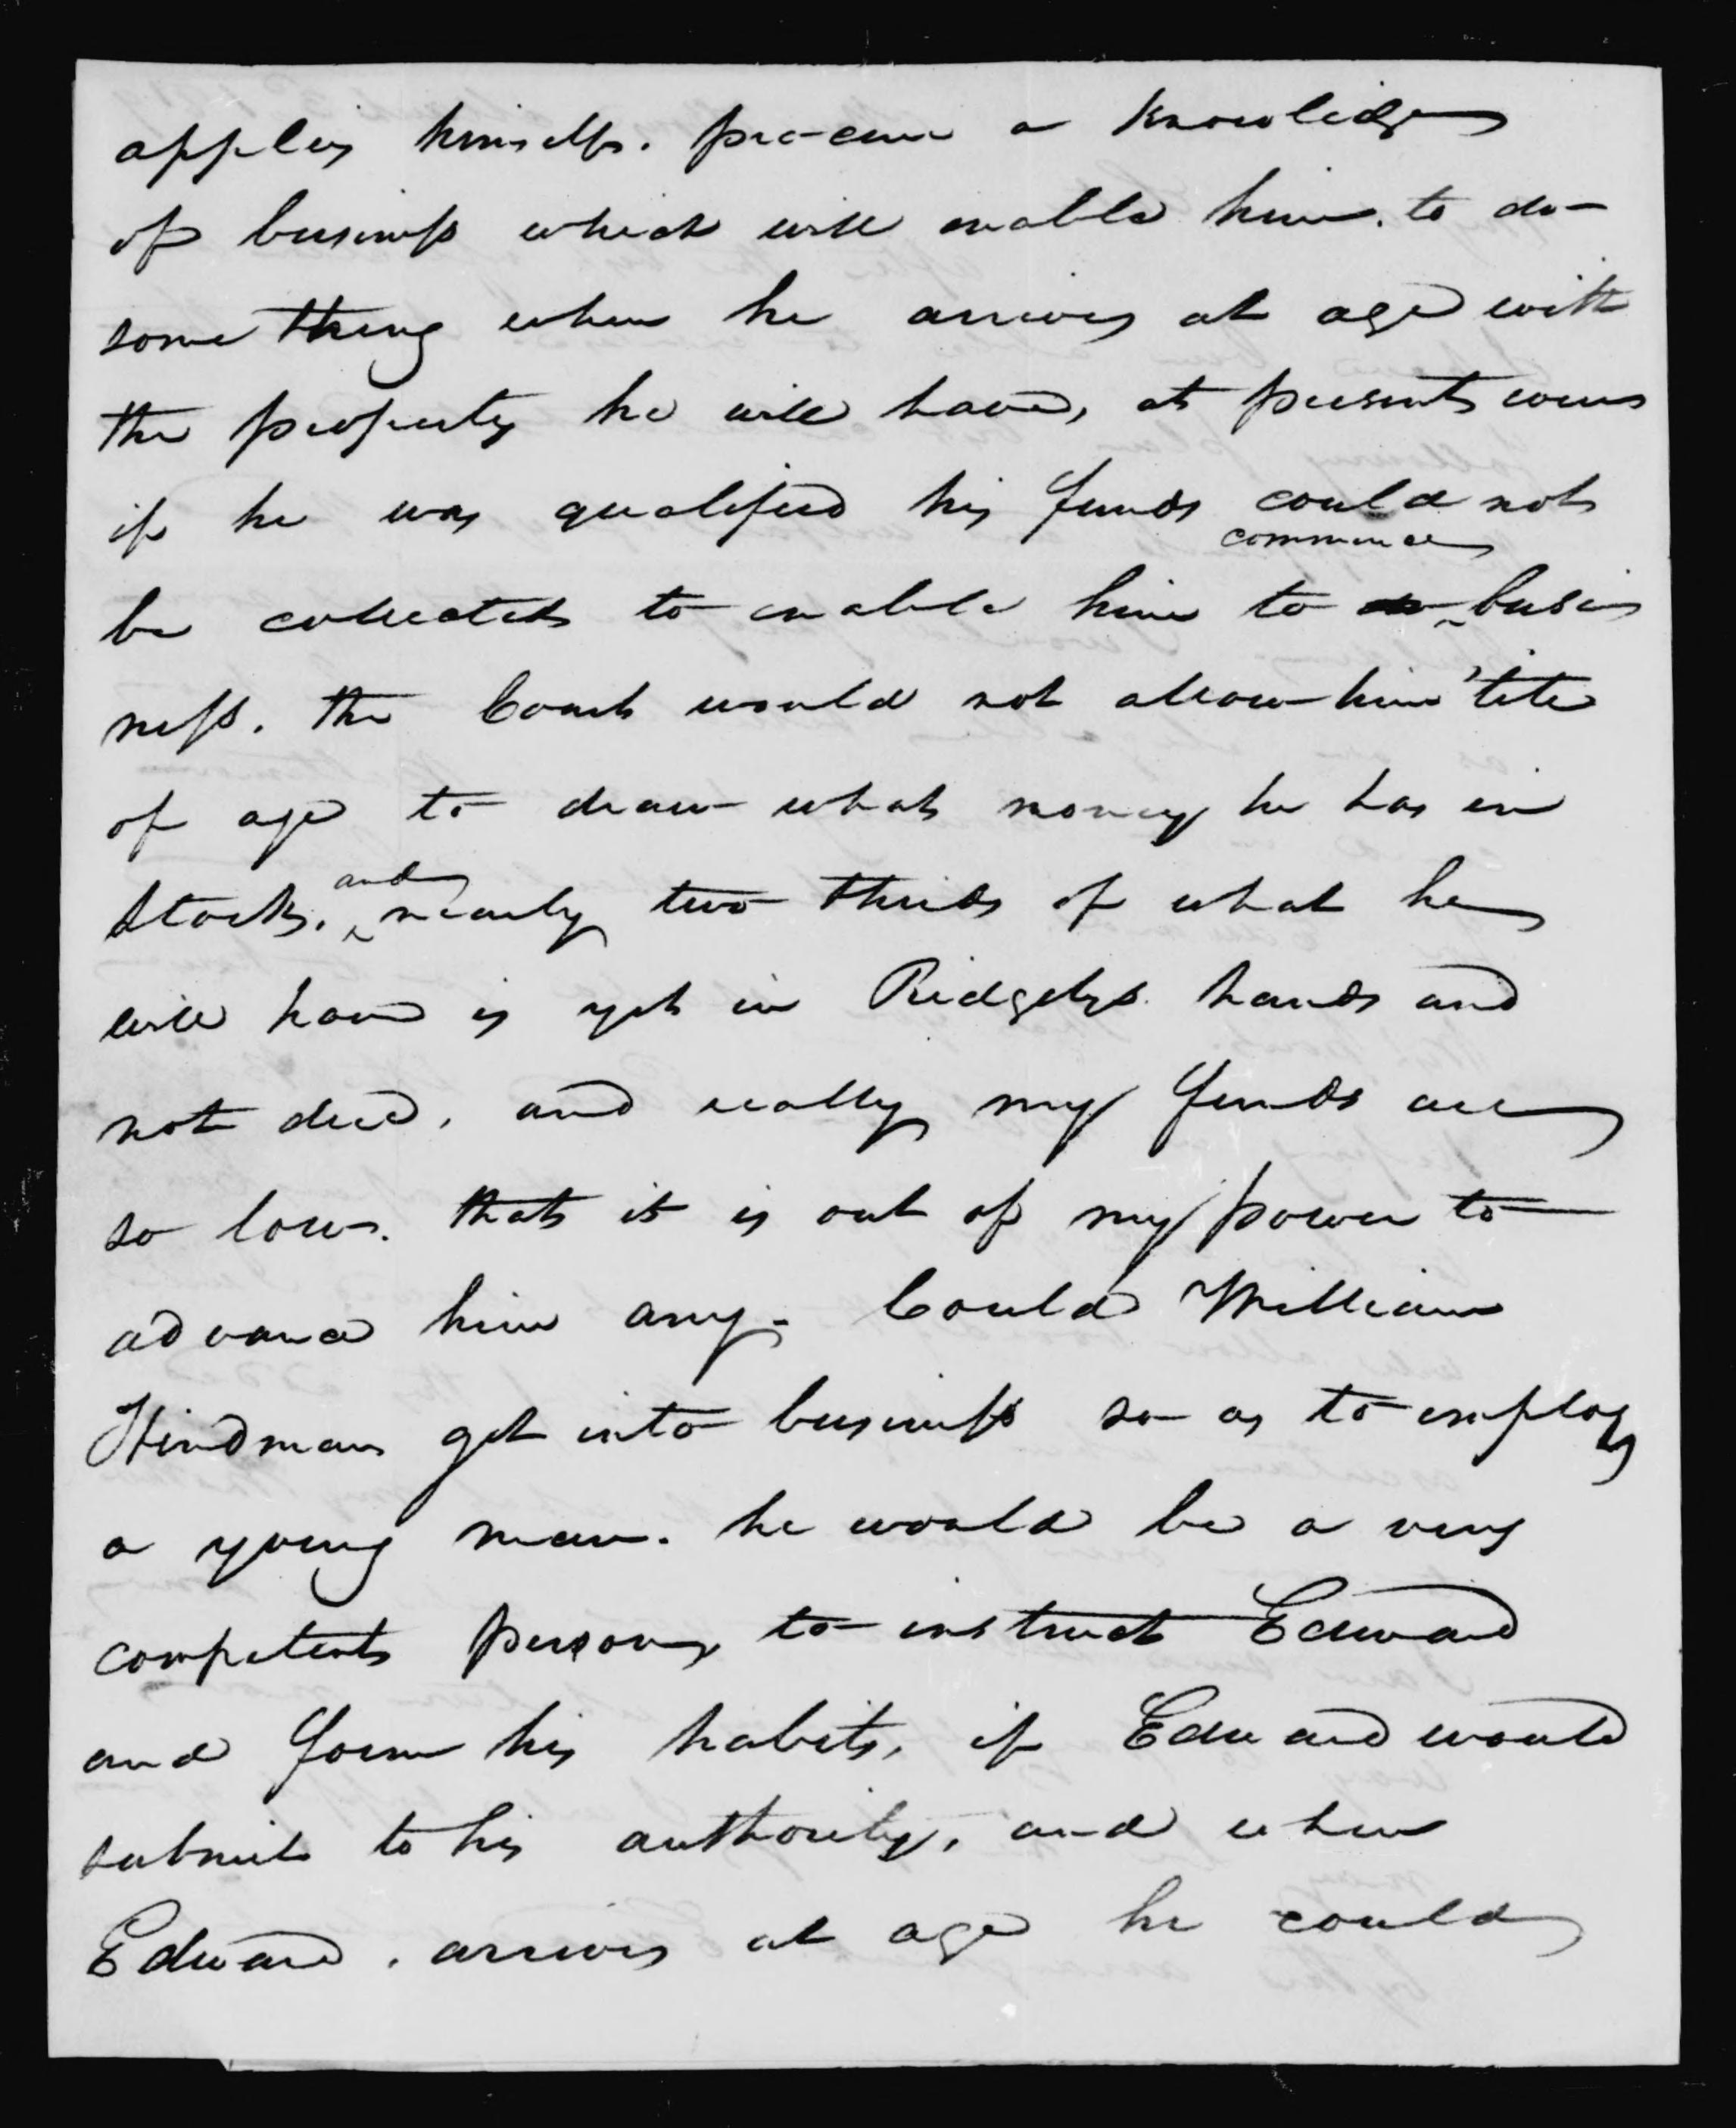 applies himself. procure a knowledge
of business which will enable him. to do
some thing when he arrives at age with
the property he will have, at present even
if he was qualified his funds could not
be collected to enable him to commence busi
ness. the Court would not allow him 'till
of age to draw what money he has in
stocks. and nearly two thirds of what he
will have is yet in Ridgelys hands and
not due, and really my funds are
so low. that it is out of my power to
advance him any. Could William
Hindman get into business so as to employ
a young man. he would be a very
competent person, to instruct Edward
and form his habits, if Edward would
submit to his authority, and when
Edward. arrives at age he could